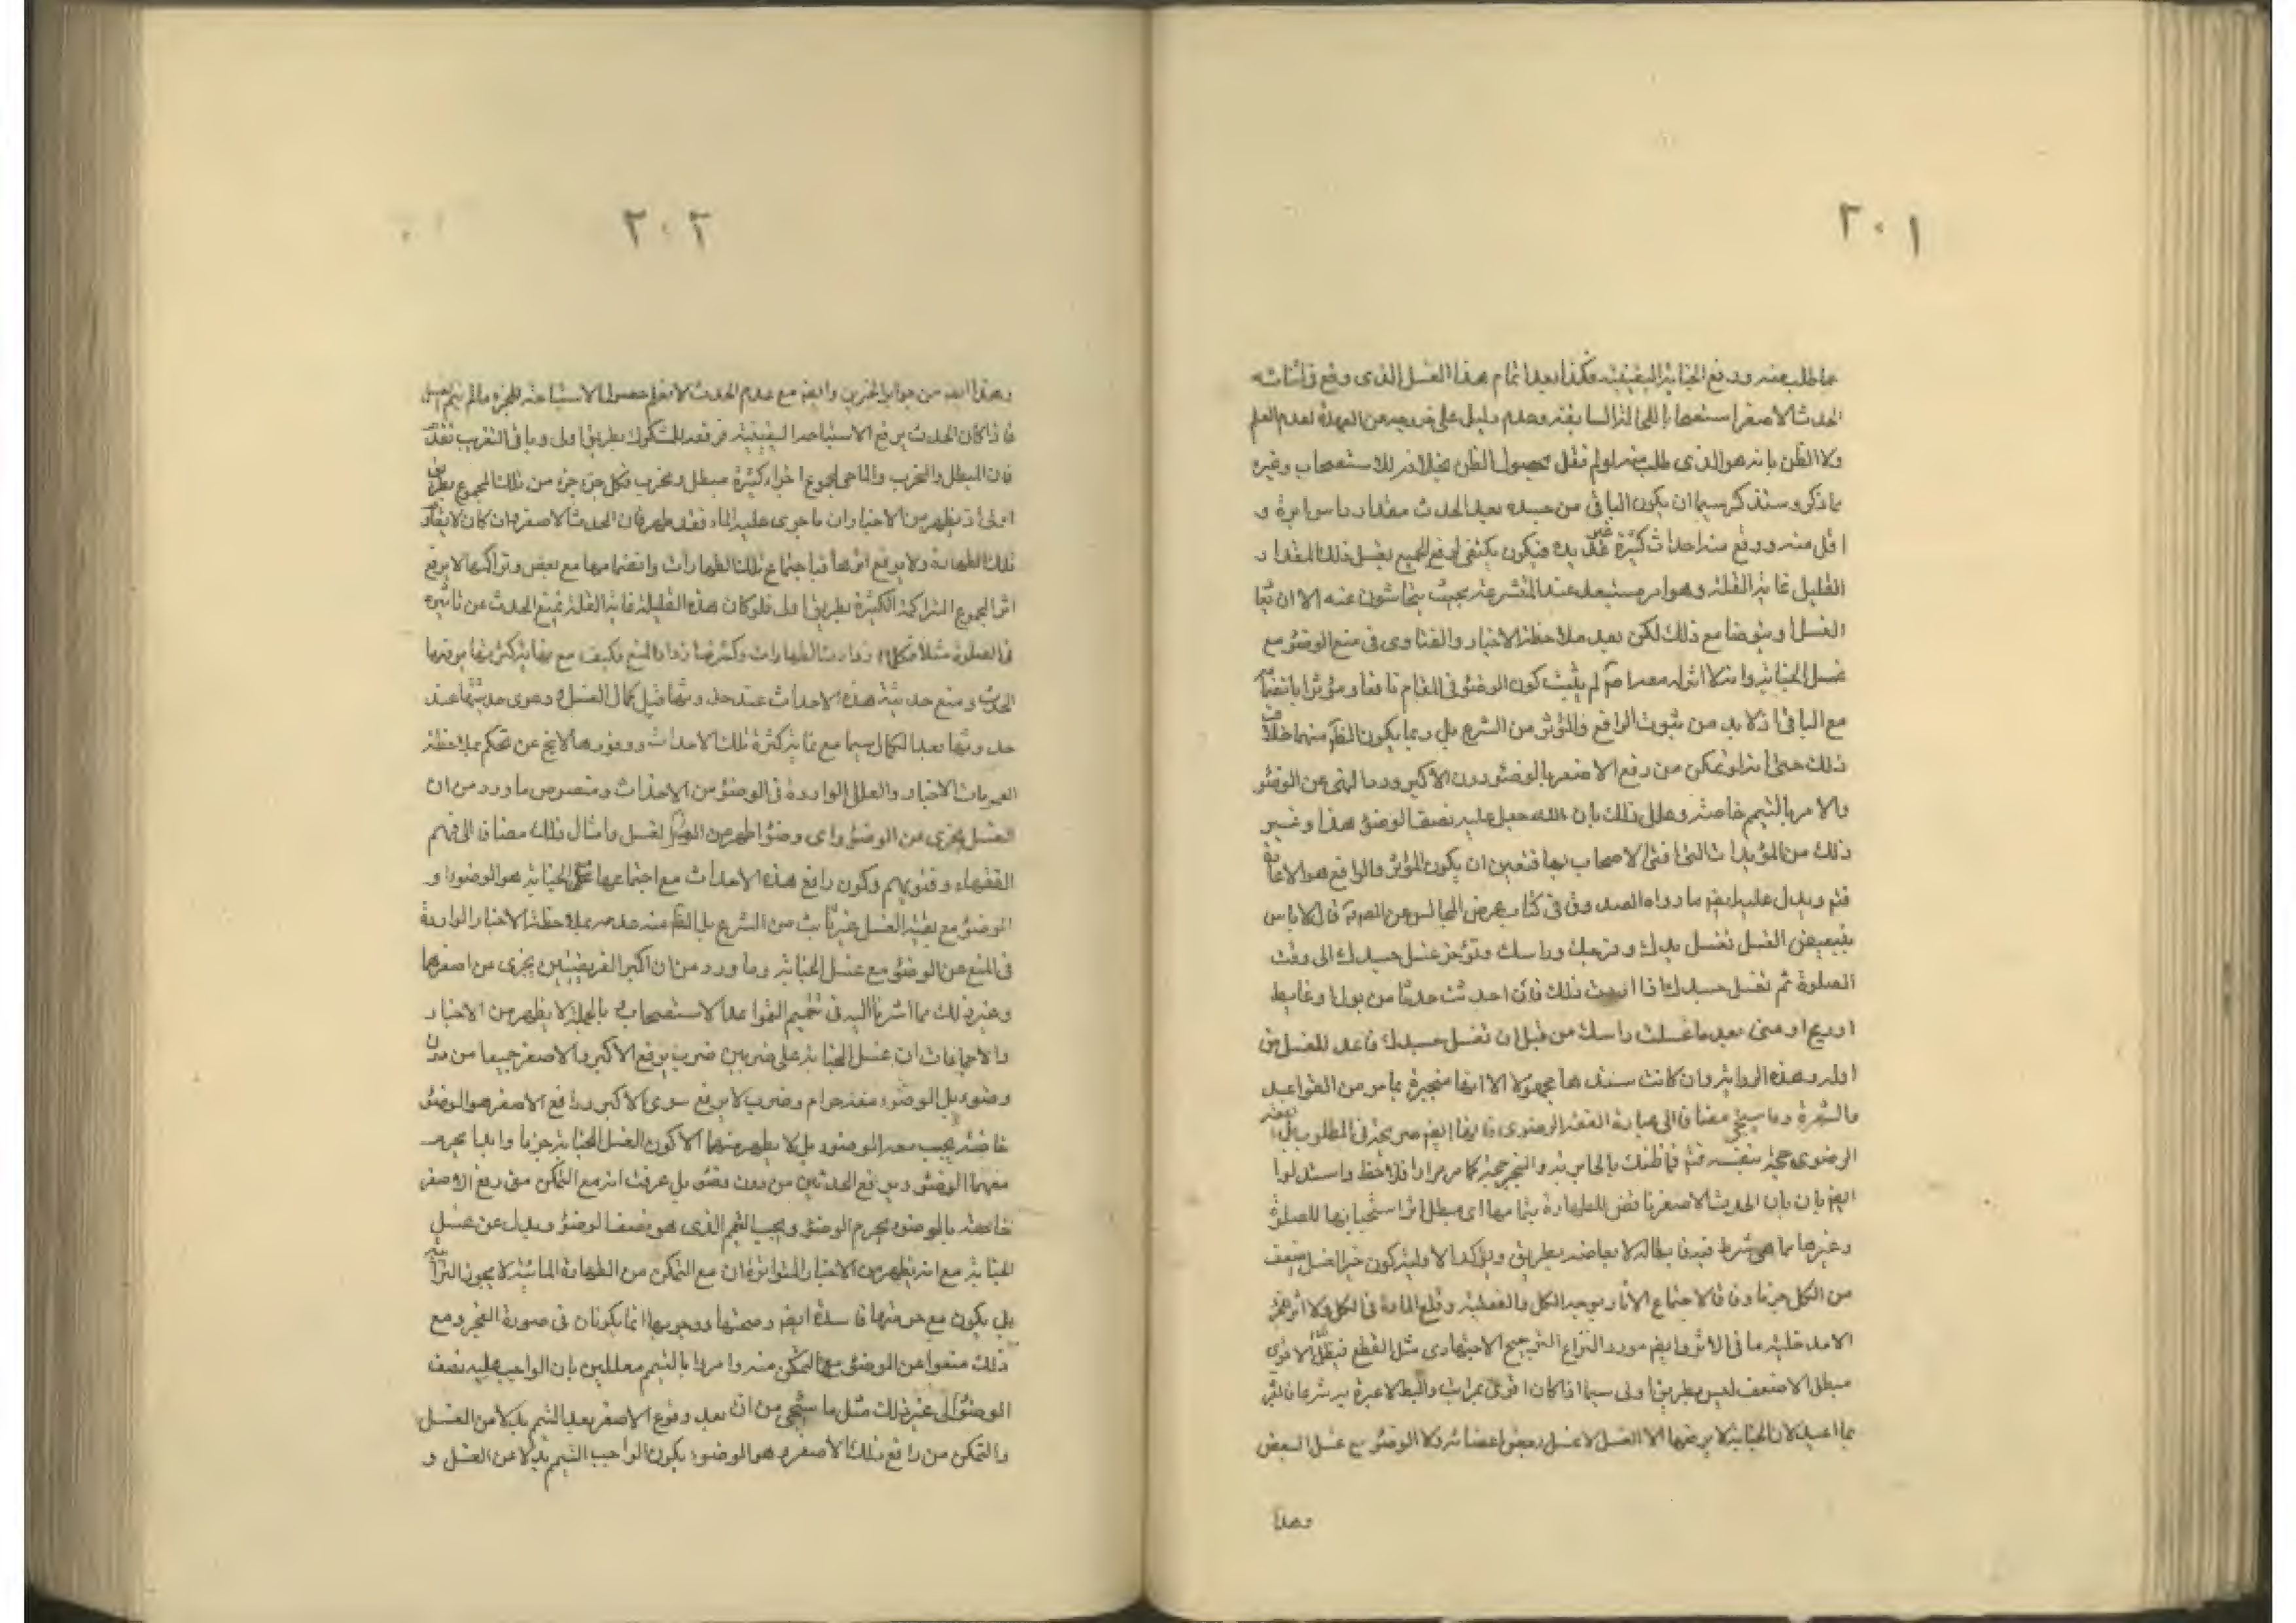 ٢٠١
مما طلب منه ورفع الجنابة اليقينية وكذا بعد اتمام هذا الغسل الذى وقع فى اثنائه
الحدث الاصغر استصحابا للحالة السابقة وعدم دليل على خروجه عن العهدة لعدم العلم
ولا الظن بانه هو الذى طلب منه لو لم نقل بحصول الظن بخلافه للاستصحاب وغيره
ما ذكر وسنذكر سيما ان يكون الباقى من جسده بعد الحدث مقدار ابرة و
اقل منه ووقع منه احداث كثيرة غير فيكون يكتفى لرفع الجميع بغسل ذلك المقدار
القليل غاية القلة وهو امر مستبعد عند المتشرعة بحيث يتحاشون عنه الا ان
الغسل ويتوضا مع ذلك لكن بعد ملاحظة الاخبار والفتاوى فى منع الوضوء مع
غسل الجنابة وانه لا اثر له معه لم يثبت كون الوضوء فى المقام نافعا ومؤثرا
مع الباقى اذ لا بد من ثبوت الرافع والمؤثر من الشرع بل ربما يكون الظاهر منهما خلاف
ذلك حتى انه لو تمكن من رفع الاصغر بالوضوء دون الاكبر ورد النهى عن الوضوء
والامر بالتيمم خاصة وعلل ذلك بان الله جعل عليه نصف الوضوء هذا وغير
ذلك من المؤيدات التى افتى الاصحاب بها فتعين ان يكون المؤثر والرافع هو الاعادة
فتم ويدل عليه ايضا ما رواه الصدوق فى كتاب عرض المجالس عن الصادق قال لا باس
بتبعيض الغسل تغسل يدك وفرجك وراسك وتؤخر غسل جسدك الى وقت
الصلوة ثم تغسل جسدك اذا اردت ذلك فان احدثت حدثا من بول او غايط
او ريح او منى بعد ما غسلت راسك من قبل ان تغسل جسدك فاعد الغسل من
اوله وهذه الرواية وان كانت سندها مجهولا الا انها منجبرة بما مر من القواعد
والشهرة وما سيجئ مضافا الى عبارة الفقه الرضوى فانها ايضا صريحة فى المطلوب بل الفقه
الرضوى حجة بنفسه فتم فما ظنك بالجابرية والمنجبر حجة كما مر مرارا فلاحظ واستدلوا
ايضا بان الحدث الاصغر ناقض للطهارة بتمامها اى مبطل اثر استباحتها للصلوة
وغيرها مما هى شرط فيه فابطاله لابعاضه بطريق
من الكل جزما وفاقا لاجتماع الاثار يوجد الكل بالفعلية وقلع المادة فى الكل ولا اثر
الا مدخلية ما فى الاثر وايضا مورد النزاع الترجيح الاجتهادى مثل القطع
مبطل الاضعف ليس بطريق اولى سيما اذا كان اقوى بمراتب والمبطل لا عبرة به شرعا
بما اعيد لان الجنابة لا يرفعها الا الغسل لا غسل بعض اعضائه ولا الوضوء مع غسل البعض
وهذا
٢٠٢
وهذا ايضا من جوابه الحزين وايضا مع عدم الحدث لا نعلم حصول الاستباحة للجزء ما لم يتم
فاذا كان الحدث يرفع الاستباحة اليقينية فرفعه المشكوك بطريق اولى وباقى التقريب تقدم
فان المبطل والمخرب والماحى لمجموع اجزاء كثيرة مبطل ومخرب لكل جزء جزء من ذلك المجموع بطريق
اولى اذ يظهر من الاخبار ان ما جرى عليه الماء فقد طهر فان الحدث الاصغر ان كان لا
تلك الطهارة ولا يرفع اثرها فباجتماع تلك الطهارات وانضمامها مع بعض وتراكمها لا يرفع
اثر المجموع المتراكمة الكثيرة بطريق اولى فلو كان هذه القليلة غاية القلة تمنع الحدث عن تاثيره
فى الصلوة مثلا فكلما زادت الطهارات وكثرت زاد المنع فكيف مع نهاية كثرتها
الحدث ومنع حدثية هذه الاحداث عند حدوثها قبل كمال الغسل ودعوى حدثيتها عند
حدوثها بعد الكمال سيما مع نهاية كثرة تلك الاحداث ووفورها لا يخ عن تحكم بملاحظة
العمومات الاخبار والعلل الواردة فى الوضوء من الاحداث وخصوص ما ورد من ان
الغسل يجزى عن الوضوء واى وضوء اطهر من الغسل وامثال ذلك مضافا الى فهم
الفقهاء وفتويهم وكون رافع هذه الاحداث مع اجتماعها مع الجنابة هو الوضوء او
الوضوء مع بقية الغسل غير ثابت من الشرع بل الظاهر منه عدمه بملاحظة الاخبار الواردة
فى المنع عن الوضوء مع غسل الجنابة وما ورد من ان اكبر الفريضتين يجزى عن اصغرهما
وغير ذلك مما اشرنا اليه فى تتميم القواعد الاستصحاب بالجملة لا يظهر من الاخبار
والاجماعات ان غسل الجنابة على ضربين ضرب يرفع الاكبر والاصغر جميعا من دون
وضوء بل الوضوء معه حرام وضرب لا يرفع سوى الاكبر ورافع الاصغر هو الوضوء
خاصة يجب معه الوضوء بل لا يظهر منهما الا كون الغسل الجنابة جزما وابدا يحرم
معهما الوضوء ويرفع الحدثين من دون وضوء بل عرفت انه مع التمكن من رفع الاصغر
خاصة بالوضوء يحرم الوضوء ويجب التيمم الذى هو نصف الوضوء وبدل عن غسل
الجنابة مع انه يظهر من الاخبار المتواترة ان مع التمكن من الطهارة المائية لا يجوز الترابية
بل يكون مع حرمتها فاسدة ايضا وصحتها ووجوبها انما يكونان فى صورة العجز ومع
ذلك منعوا عن الوضوء مع التمكن منه وامروا بالتيمم معللين بان الواجب عليه نصف
الوضوء الى غير ذلك مثل ما سيجئ من ان بعد وقوع الاصغر بعد التيمم بدلا من الغسل
والتمكن من رافع ذلك الاصغر وهو الوضوء يكون الواجب التيمم بدلا عن الغسل و